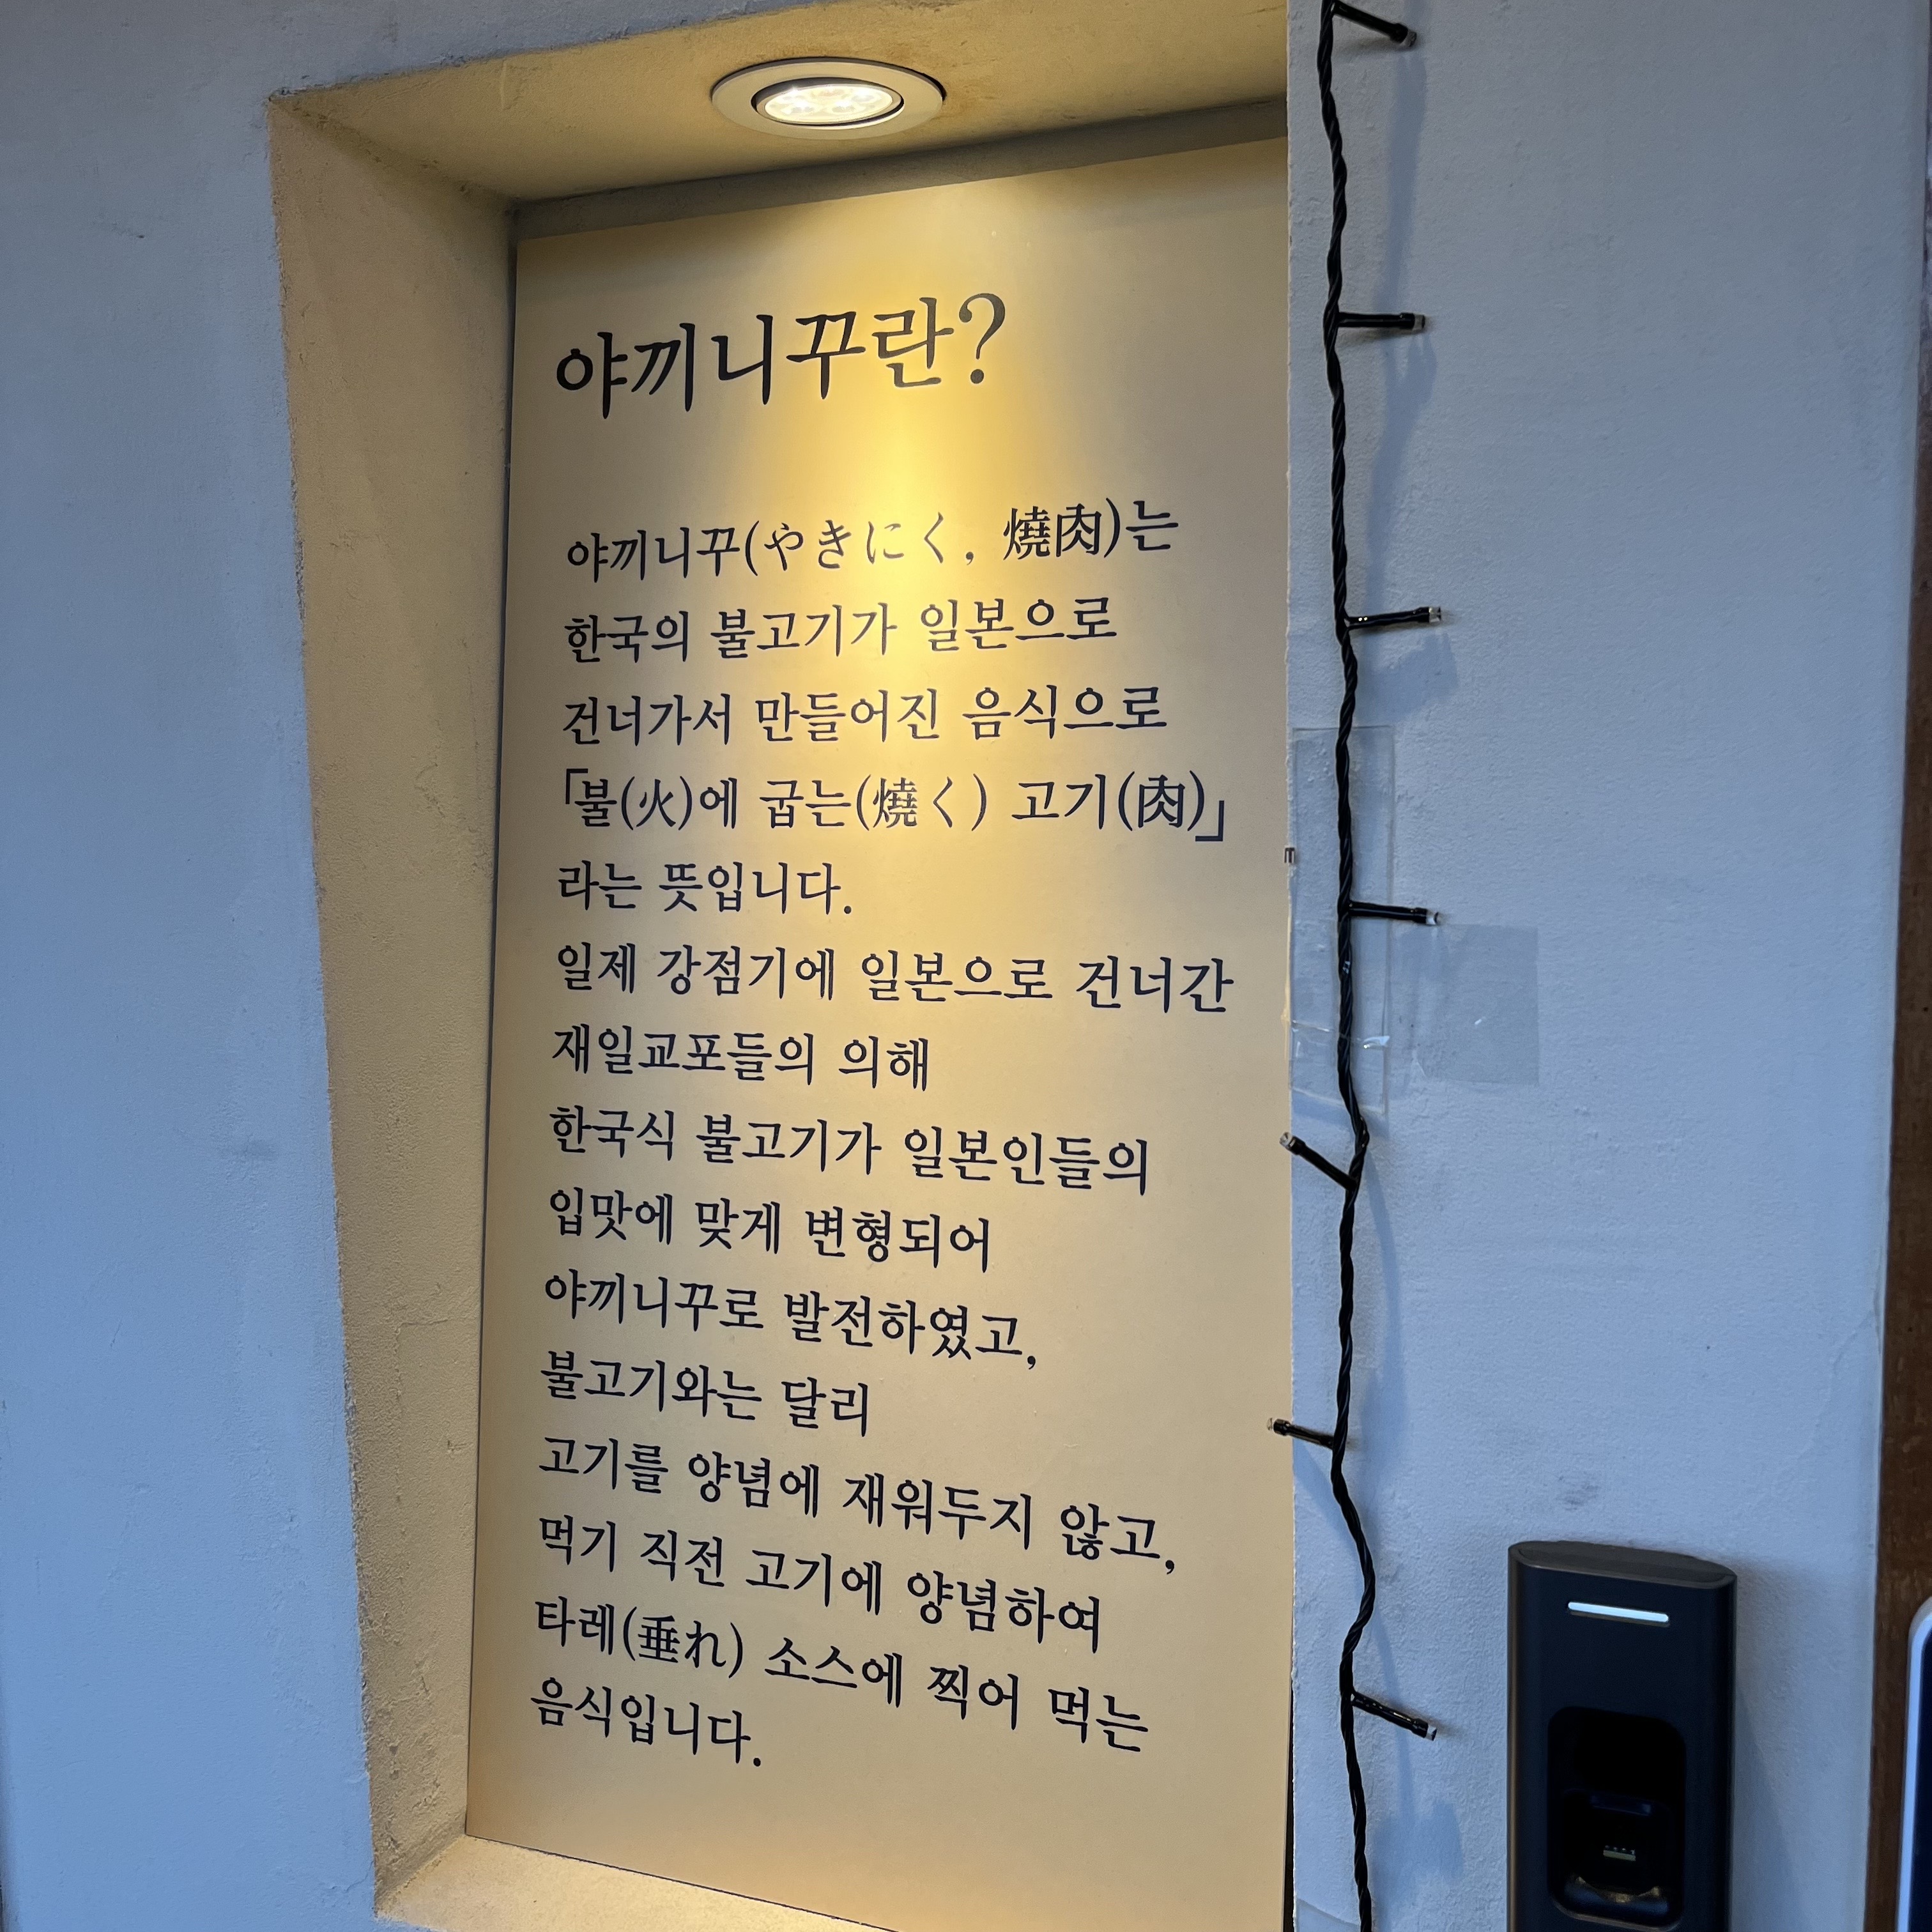 야끼니꾸란?
야끼니꾸(やきにく, 燒肉)는
한국의 불고기가 일본으로
건너가서 만들어진 음식으로
「불(火)에 굽는(燒く) 고기(肉)」
라는 뜻입니다.
일제 강점기에 일본으로 건너간
재일교포들의 의해
한국식 불고기가 일본인들의
입맛에 맞게 변형되어
야끼니꾸로 발전하였고,
불고기와는 달리
고기를 양념에 재워두지 않고,
먹기 직전 고기에 양념하여
타레(垂れ) 소스에 찍어 먹는
음식입니다.